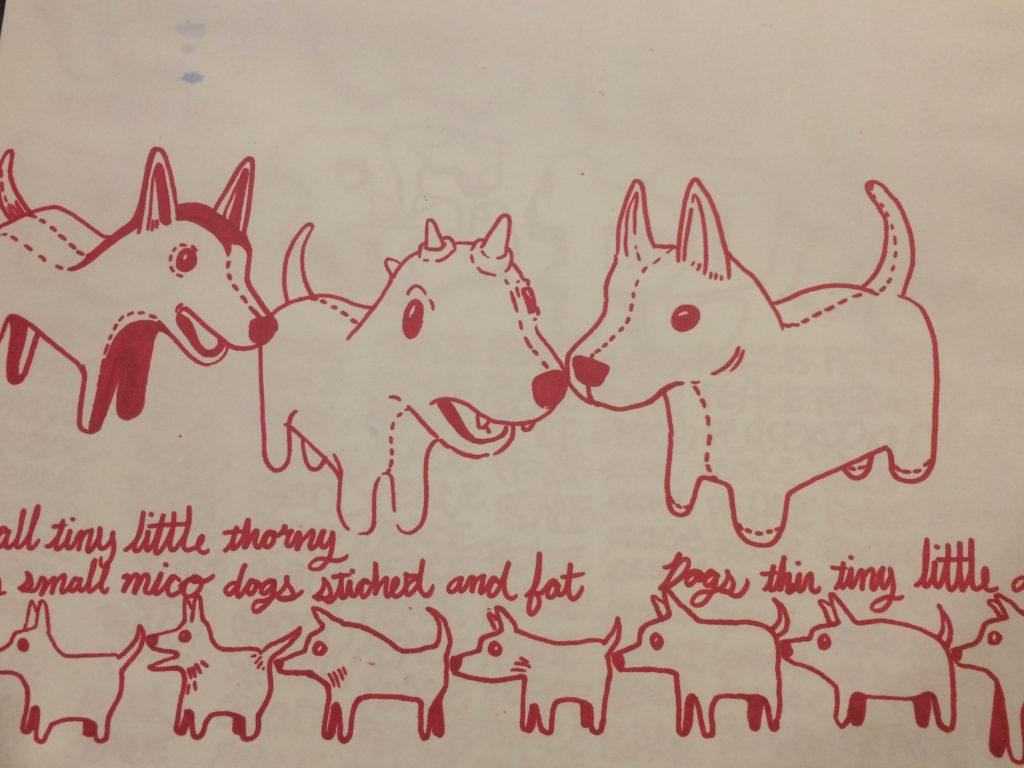 all tiny little thorny
s small mico dogs stiched and fat
Dogs thin tiny little